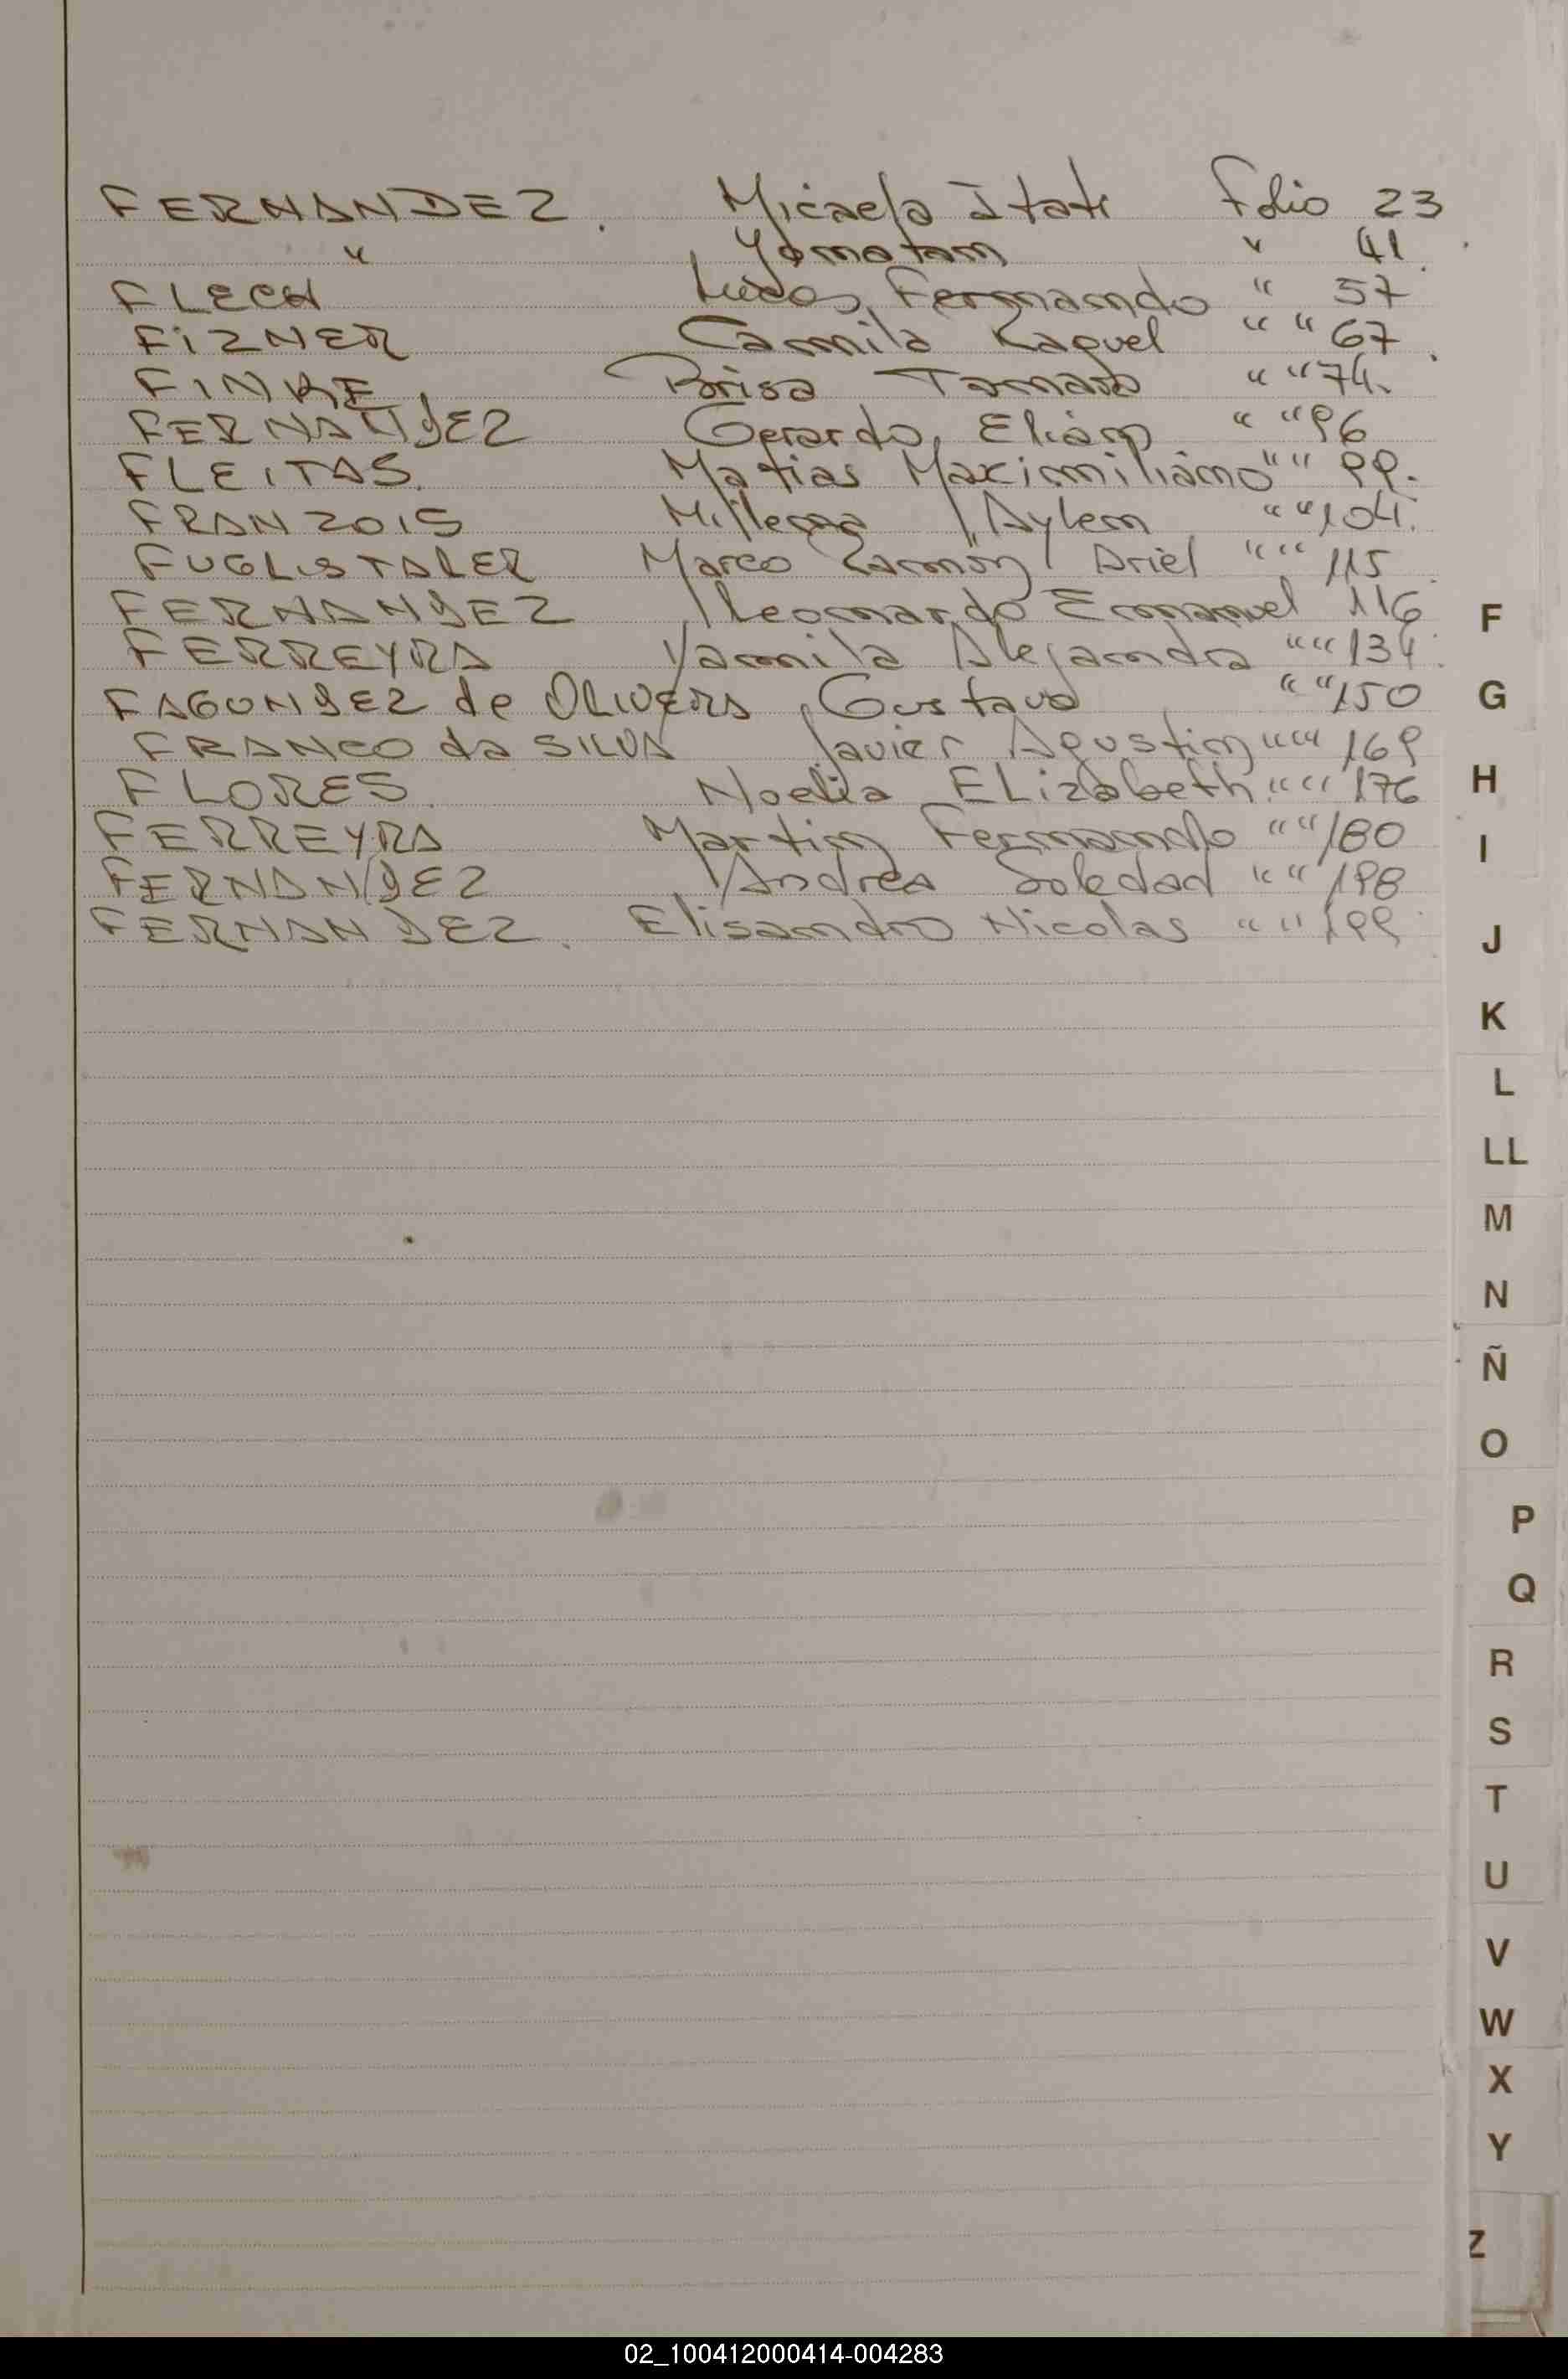 FERNANDEZ. Micaela Itati Folio 23
" Yonatan " 41.
FLECH Lucas Fernando " 57
FIZNER Camila Raquel " " 67.
FINKE, Brisa Tamara " " 74.
FERNANDEZ Gerardo, Elian " " 96
FLEITAS. Matias Maximiliano " " 99.
FRANZOIS Millena Aylen " " 104.
FUGLISTALER Marco Ramón Ariel " " 115
FERNANDEZ Leonardo Emanuel 116
FERREYRA Yamila Alejandra " " 134.
FAGUNDEZ de OLIVERA, Gustavo " " 150
FRANCO da SILVA Javier Agustin " " 169
FLORES. Noelia ELizabeth " " 176
FERREYRA Martin Fernando " " 180
FERNANDEZ Andrea Soledad " " 198
FERNANDEZ. Elisandro Nicolas " " 199
F
G
H
I
J
K
L
LL
M
N
Ñ
O
P
Q
R
S
T
U
V
W
X
Y
Z
02_100412000414-004283